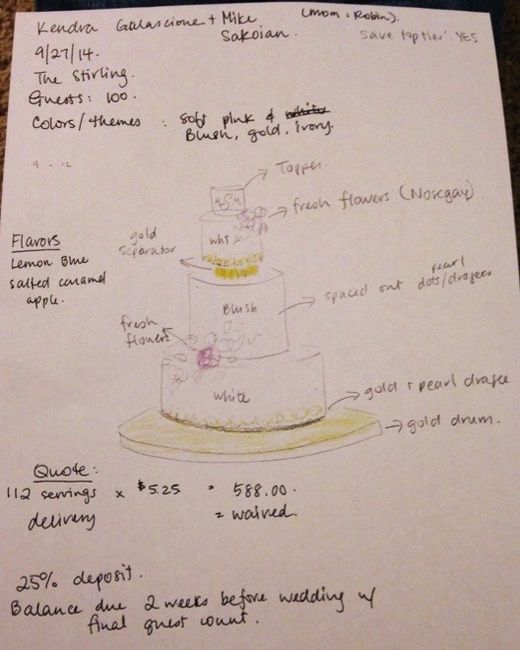 Kendra Galascione + Mike Sakoian. (mom: Robin).
save top tier: YES
9/27/14.
The Stirling.
Guests: 100.
Colors/themes : soft pink & white
Blush, gold, ivory.
9 - 12
Topper
fresh flowers (Nosegay)
gold separator
white
Flavors
Lemon Blue
salted caramel apple.
Blush
spaced out pearl dots/dragees
fresh flowers
white
gold + pearl dragee
gold drum.
Quote:
112 servings x $5.25 = 588.00.
delivery = waived.
25% deposit.
Balance due 2 weeks before wedding w/
final guest count.